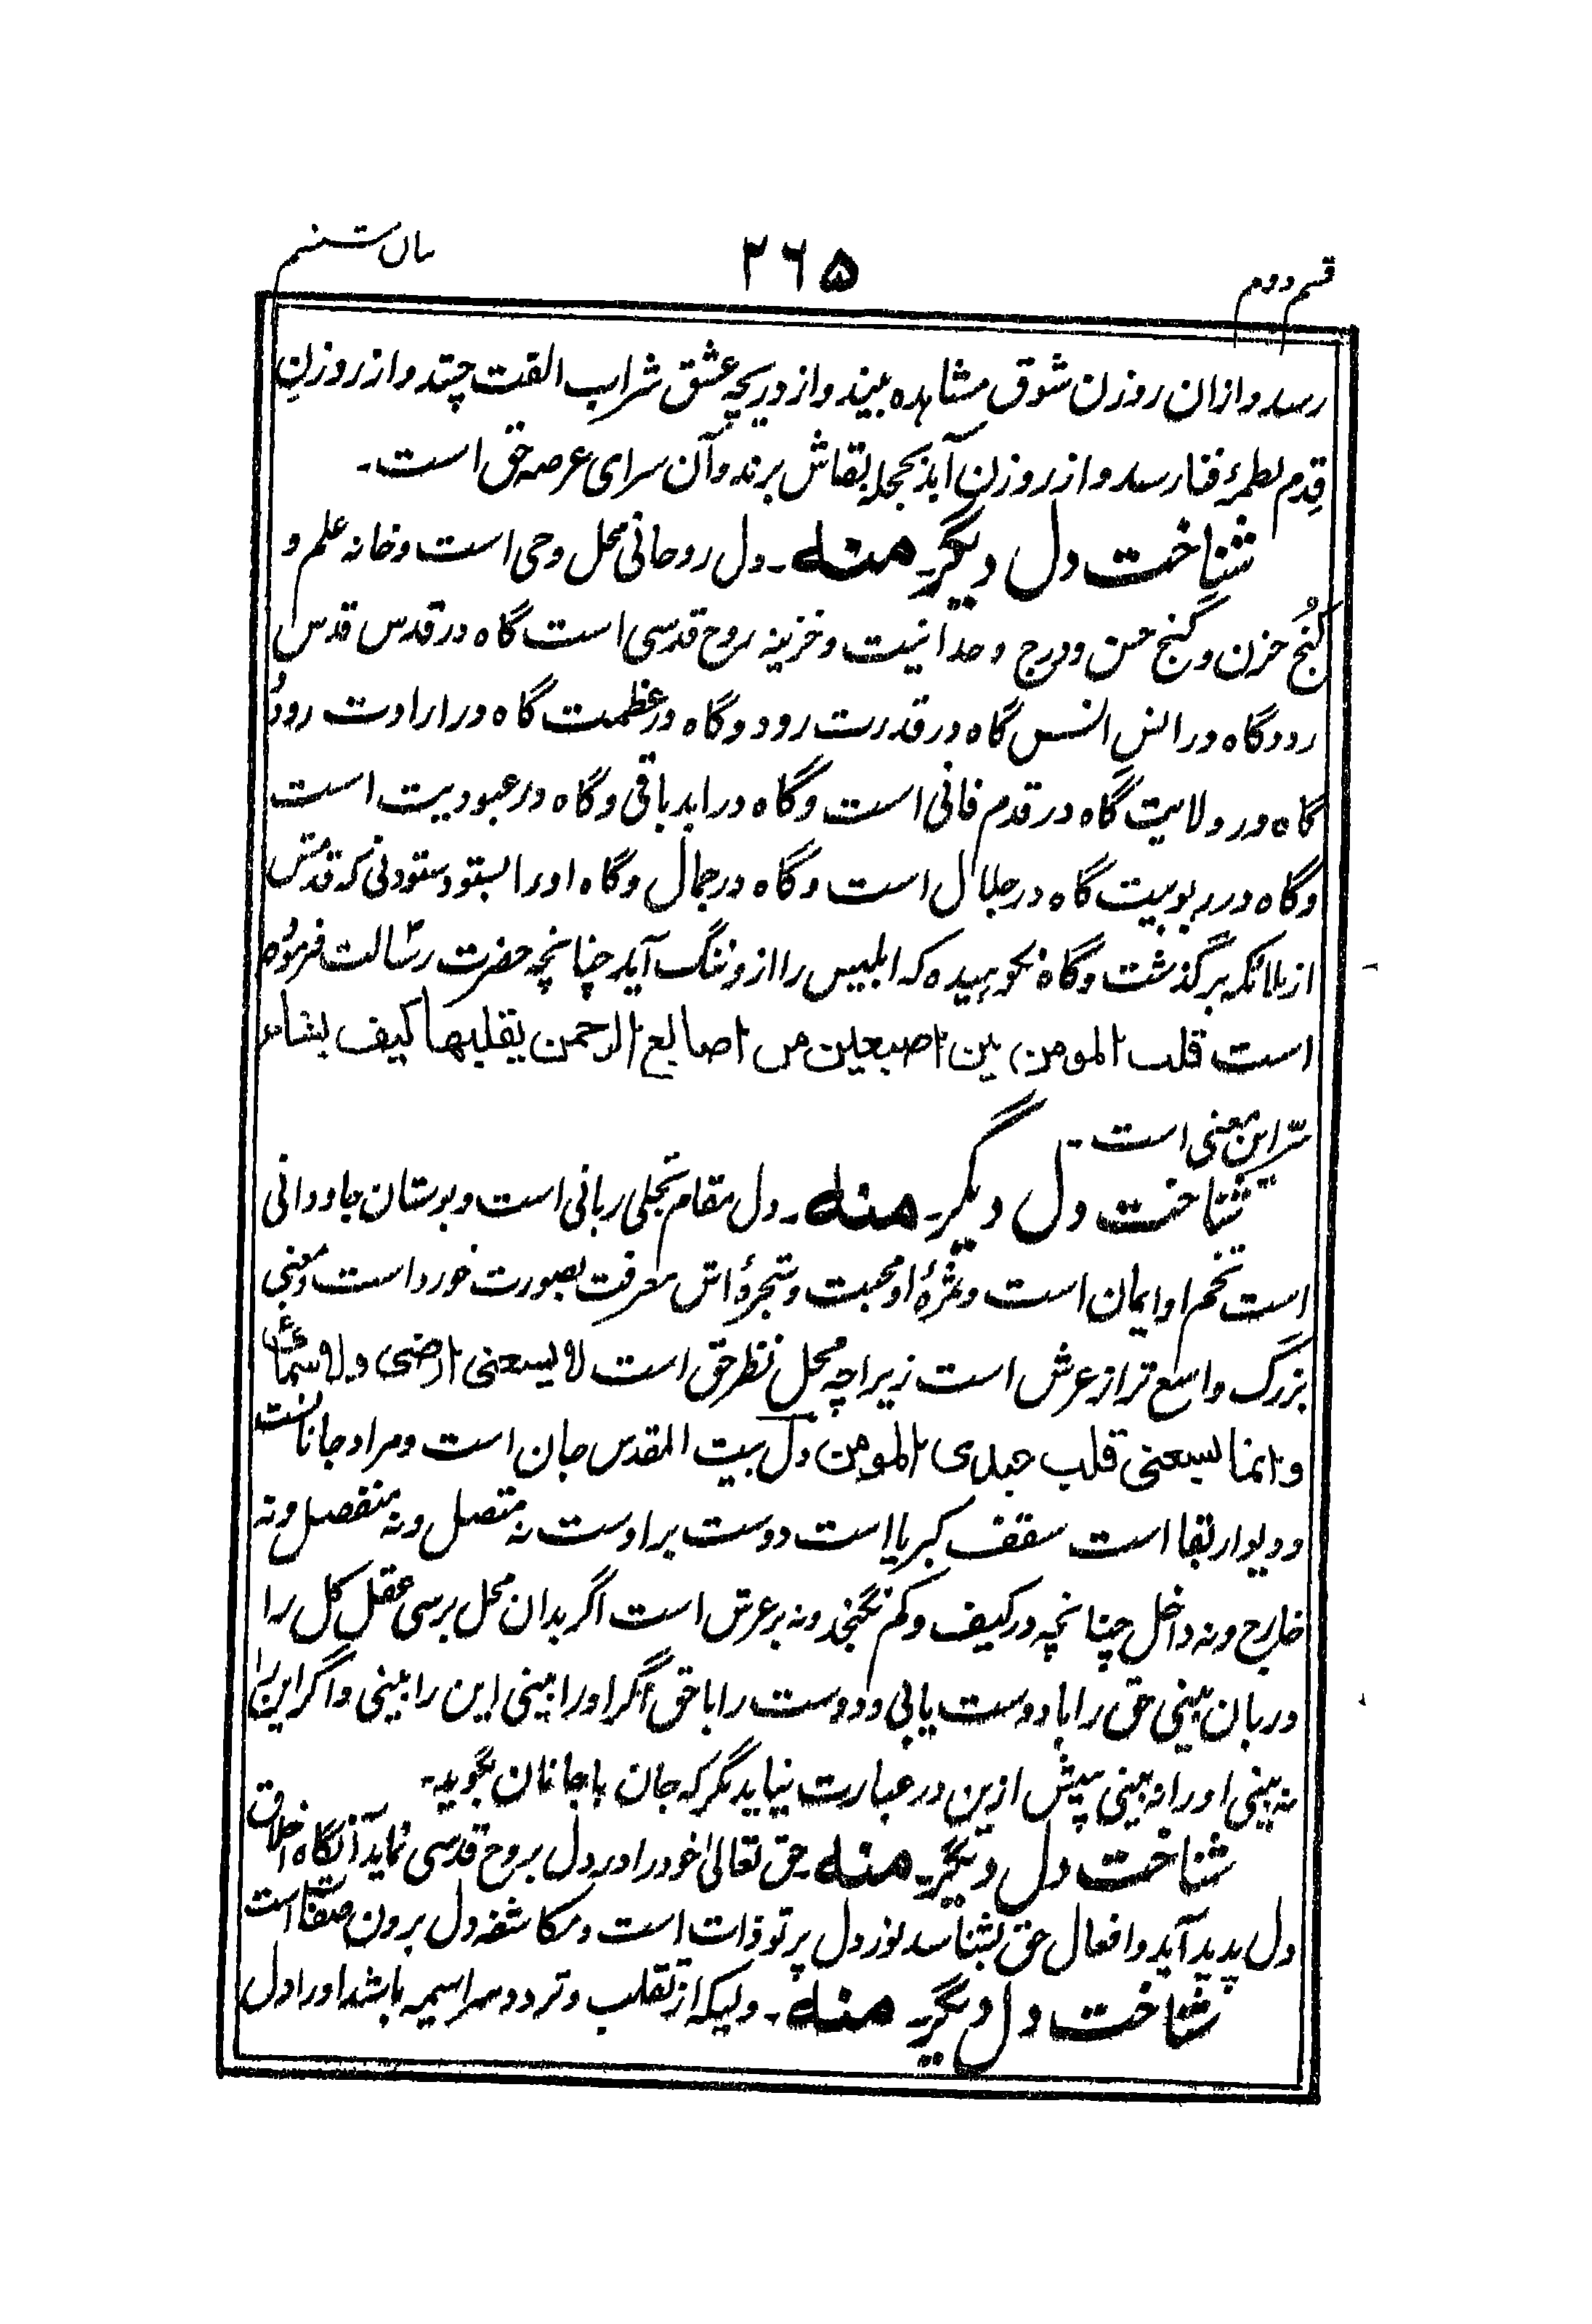 قسم دوم ۲۶۵ بیان ششم
رسد و ازان روزن شوق مشاهده بیند و از دریچه عشق شراب الفت چشد و از روزنِ
قِدم لطمهٔ فنا رسد و از روزنِ آبد بحجله بقاش برند و آن سرای عرصه حق است۔
شناخت دل دیگر۔ منه ۔ دل روحانی محل وحی است و خانه علم و
کُنج حزن و گنج حسن و درج وحدانیت و خزینه روح قدسی است گاه در قدس قدس
رود گاه در انسِ انس گاه در قدرت رود و گاه در عظمت گاه در ارادت رود
گاه در ولایت گاه در قدم فانی است و گاه در ابد باقی و گاه در عبودیت است
و گاه در ربوبیت گاه در جلال است و گاه در جمال و گاه او را بستود ستودنی که قدمش
از ملائکه برگذشت و گاه نکوهیده که ابلیس را ازو ننگ آید چنانچه حضرت رسالت فرموده
است قلب المومن بین اصبعین من اصابع الرحمن یقلبها کیف یشاء
سّر این معنی است۔
شناخت دل دیگر۔ منه ۔ دل مقام تجلی ربانی است و بوستان جاودانی
است تخم او ایمان است و ثمرهٔ او محبت و شجرهٔ اش معرفت بصورت خورد است و معنی
بزرگ واسع تر از عرش است زیراچه محل نظر حق است لا یسعنی ارضی ولا سمائی
وانما یسعنی قلب عبدی المومن دل بیت المقدس جان است و مراد جانانست
و دیوار بقا است سقف کبریا است دوست بر اوست نه متصل و نه منفصل و نه
خارج و نه داخل چنانچه در کیف و کم نگنجد و نه بر عرش است اگر بدان محل برسی عقل کل را
دربان بینی حق را با دوست یابی و دوست را با حق اگر او را بینی این را بینی و اگر این را
نه بینی او را نه بینی پیش ازین در عبارت نیاید مگر که جان با جانان بگوید۔
شناخت دل دیگر۔ منه ۔ حق تعالیٰ خود را در دل بروح قدسی نماید آنگاه اخلاق
دل پدید آید و افعال حق بشناسد نور دل پرتو ذات است و مکاشفه دل برون صفات است
شناخت دل دیگر۔ منه ۔ ولیکه از تقلب و تردد سراسیمه باشد او را دل